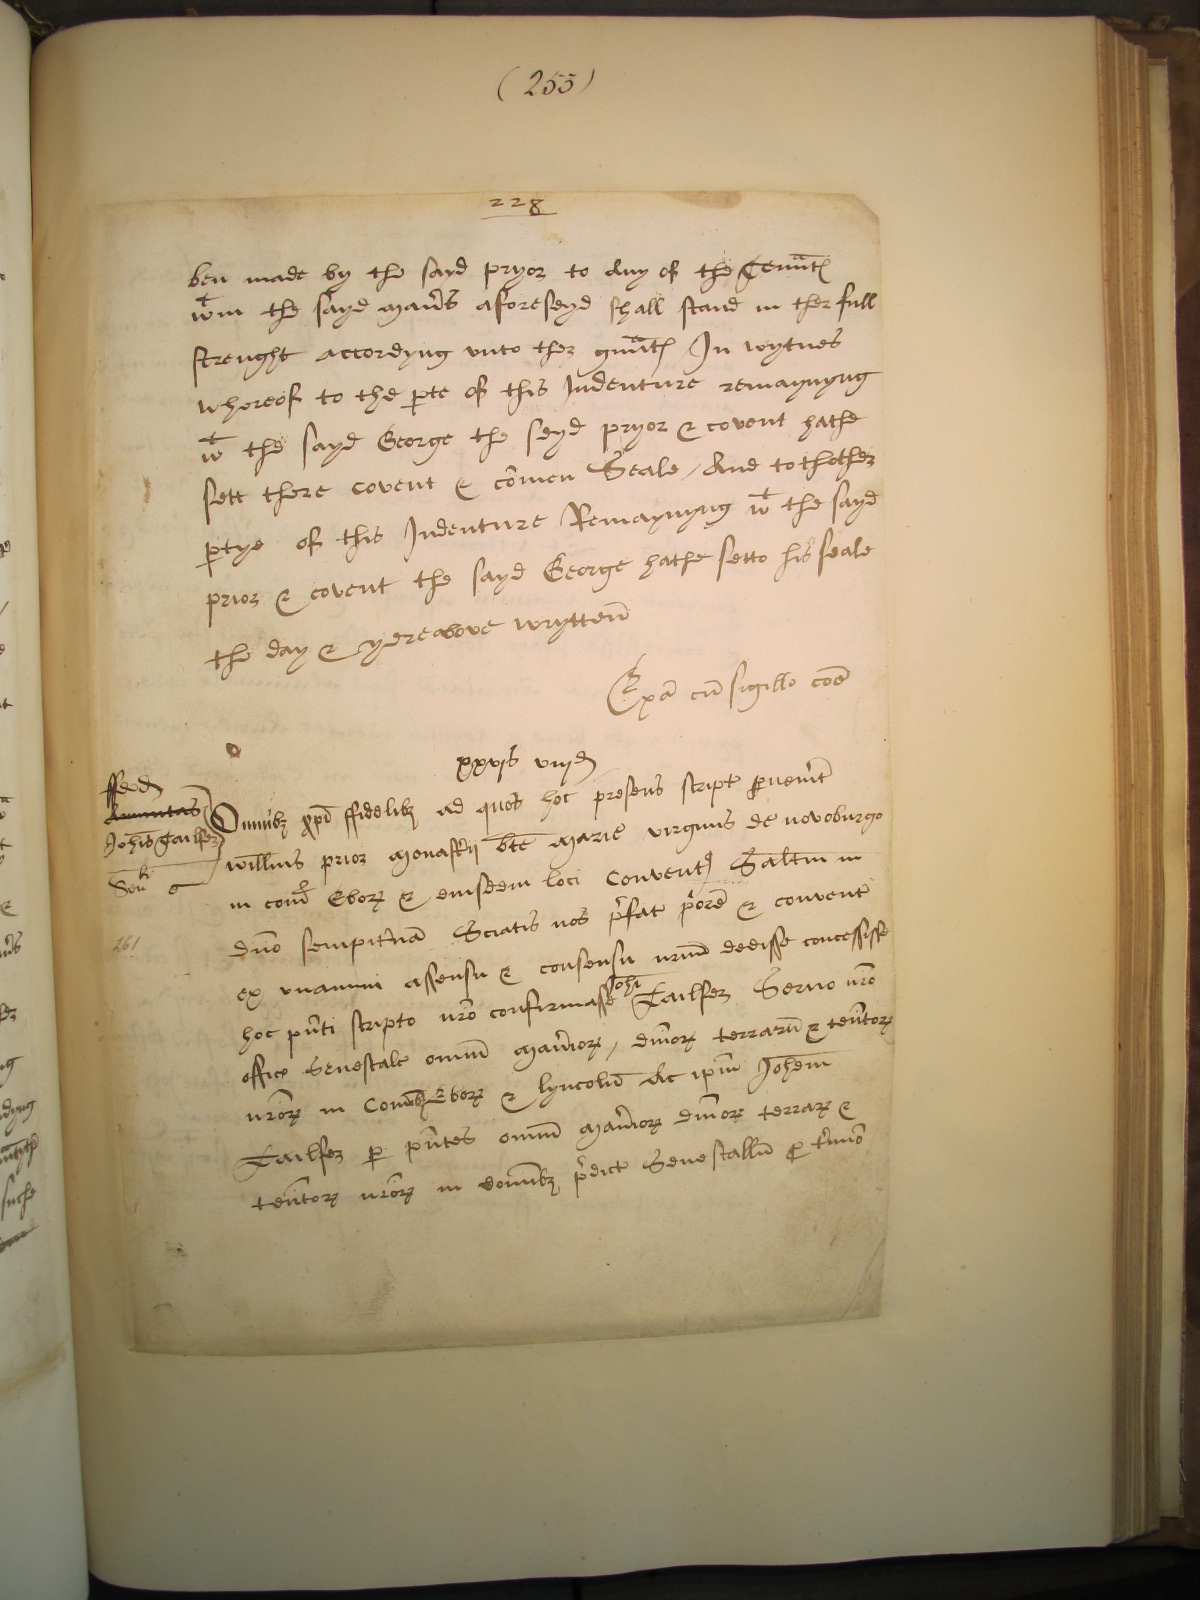 (255)
228
ben made by the sayd pryor to Any of the Tenñtꝭ
wt̃in the sayd Mañs aforeseyd shall stand in ther full
strenght accordyng unto ther gñntꝭ In wytnes
whereof to the ꝑte of this Indenture remaynyng
wt̃ the sayd George the seyd pryor & covent hathe
sett there covent & cõmen Seale / And to thother
ꝑtye of this Indenture Remaynyng wt̃ the sayd
prior & covent the sayd George hathe setto his seale
the day & yere above wryttenñ
Exã cũ sigillo coẽ
xxvjs viijd
ffeod
Annuitas
Johis Tailfer
Senli
261
Omnibꝫ xp̃i ffidelibꝫ ad quos hoc presens script ꝑvenĩt
Willm̃s prior Monastẽrij btẽ Marie virginis de novoburgo
in com̃ Eboꝝ & eiusdem loci Conventꝰ Saltm̃ in
dño sempitñã Sciatis nos p̃fat p̃orẽ & convent
ex unanimi assensu & consensu nr̃is dedisse concessisse
hoc pñti scripto nr̃o confirmasse Johi Tailfer Servo nr̃o
offic̃ Senescalt omnĩ Mañioꝝ / dñioꝝ terrarũ & teñtoꝝ
nr̃oꝝ in Comĩbꝫ Eboꝝ & lyncolñ Ac ipm̃ Johẽm
Tailfer ꝑ pñtes omnĩ Mañioꝝ dñioꝝ terraꝝ &
teñtoꝝ nr̃oꝝ in comĩbꝫ p̃dict Senescallũ ꝓ tr̃mino